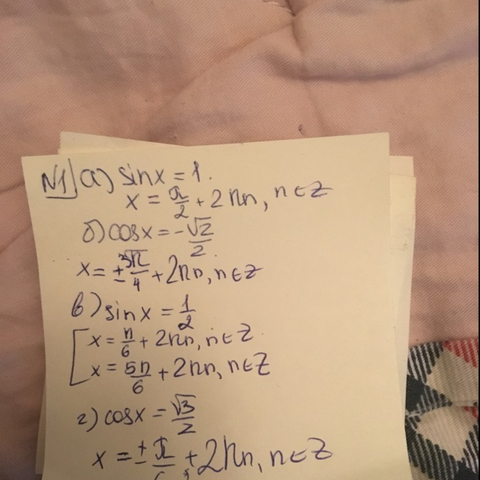 N1 а) sinx = 1.
x = π/2 + 2πn, n∈Z
б) cosx = -√2/2
x = ±3π/4 + 2πn, n∈Z
в) sinx = 1/2
[ x = π/6 + 2πn, n∈Z
x = 5π/6 + 2πn, n∈Z
г) cosx = √3/2
x = ± π/6 + 2πn, n∈Z